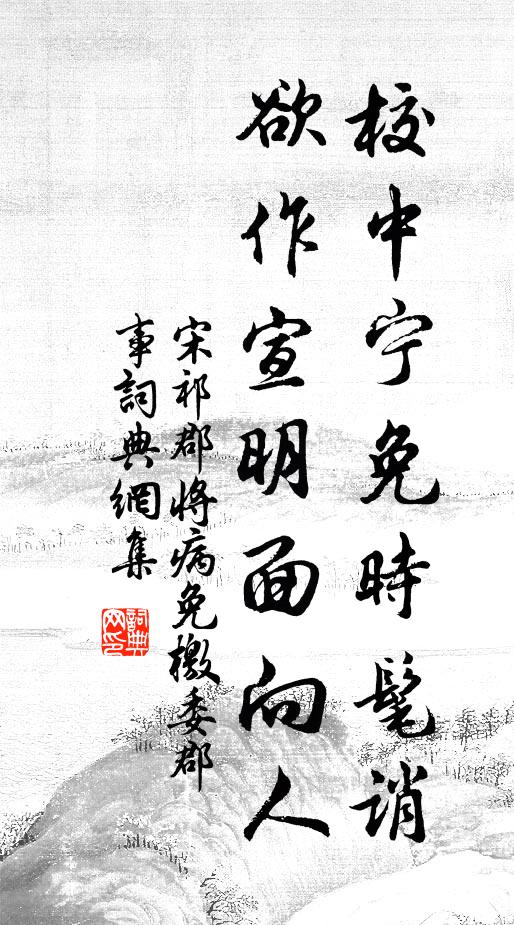 校中宁免時髦誚
欲作宣明面向人
宋祁郡将病免檄委郡
事詞典網集
詞典网印